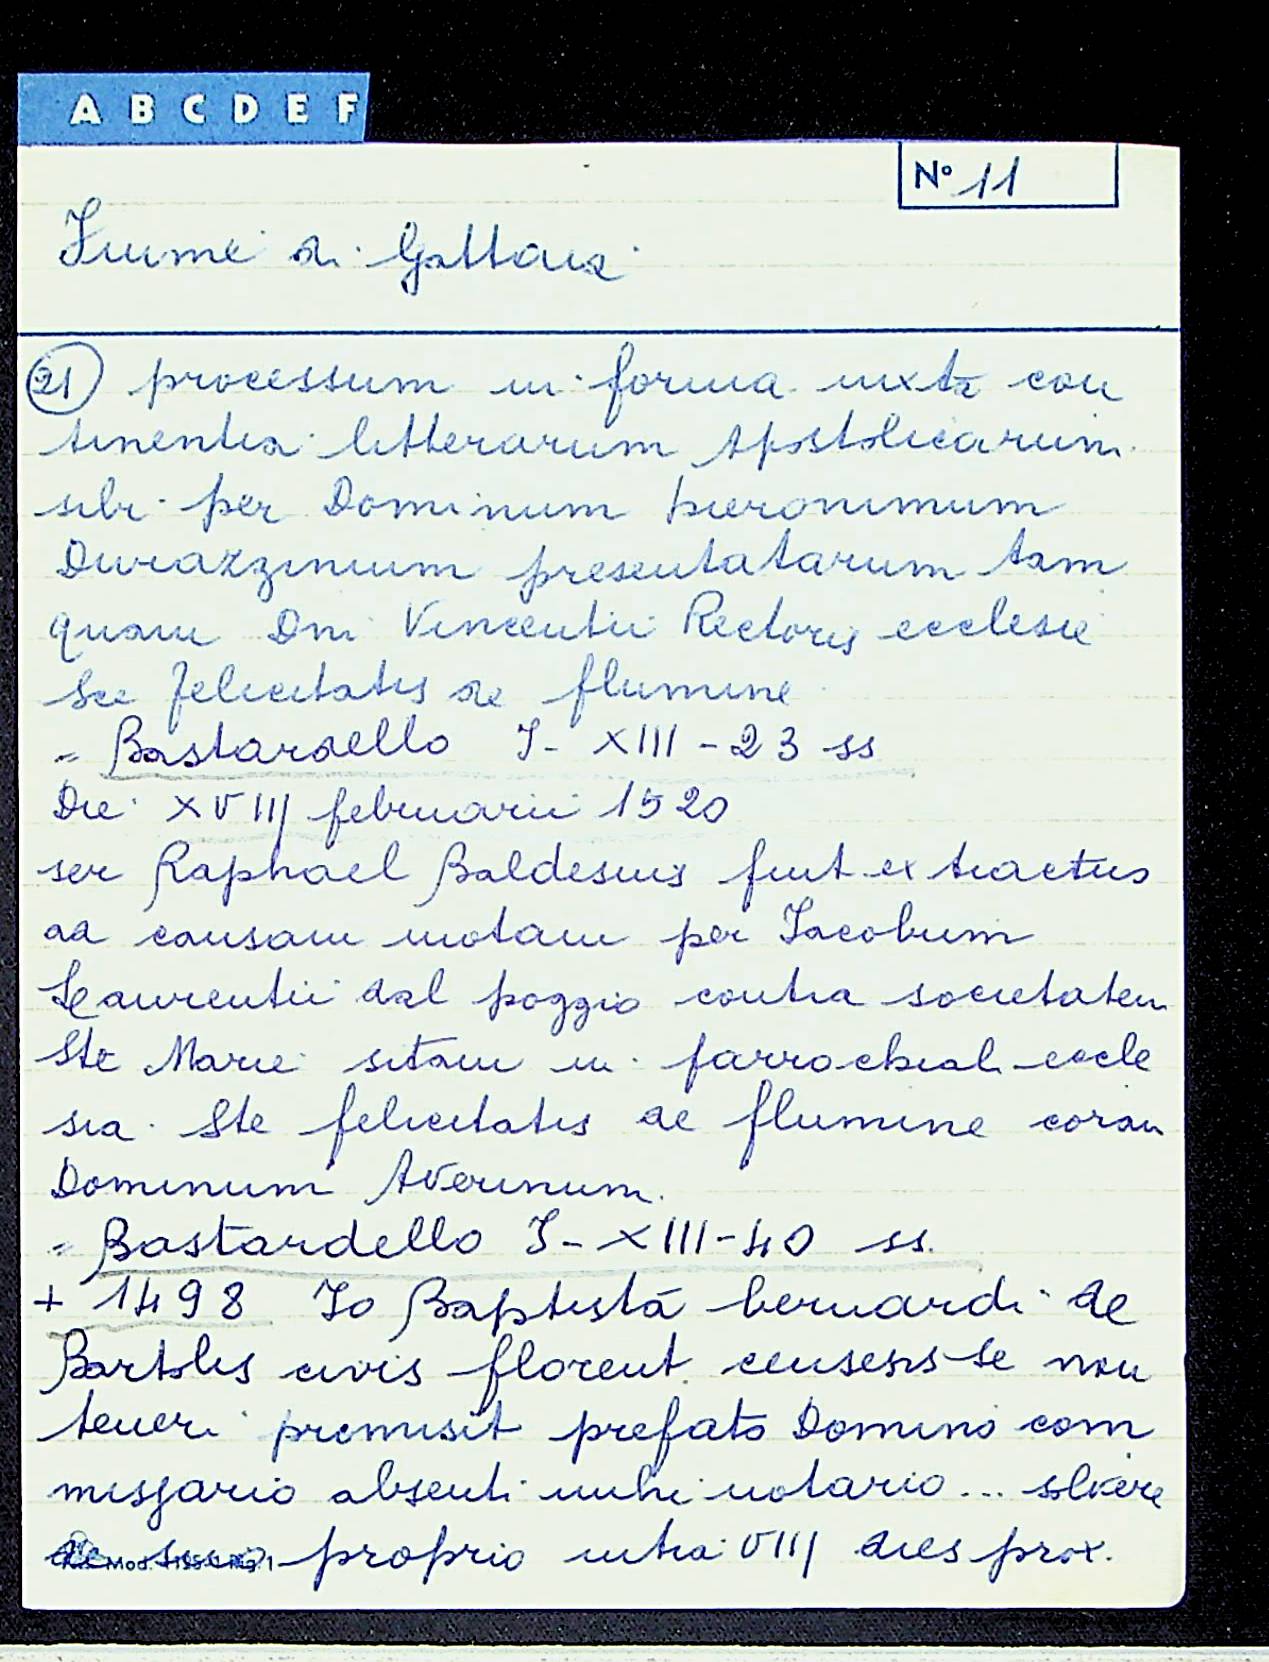 A B C D E F
Nº 11
Fiume di Gattaia
21 processum in forma iuxta con
tinentia litterarum Apostolicarum
sibi per Dominum hieronimum
Durazzinium presentatarum tam
quam Dni Vincentii Rectoris ecclesie
Sce felicitatis de flumine
= Bastardello I - XIII - 23 ss
Die XVIIJ februarii 1520
ser Raphael Baldesinis fuit extractus
ad causam motam per Jacobum
Laurentii dal poggio contra societatem
Ste Marie sitam in parrochiali eccle
sia Ste felicitatis de flumine coram
Dominum Averinum.
= Bastardello I - XIII - 40 ss.
+ 1498 Jo Baptistā bernardi de
Bartolis civis florent. censens se non
teneri promisit prefato Domino com
missario absenti mihi notario... solvere
de suo proprio intra VIIJ dies prox.